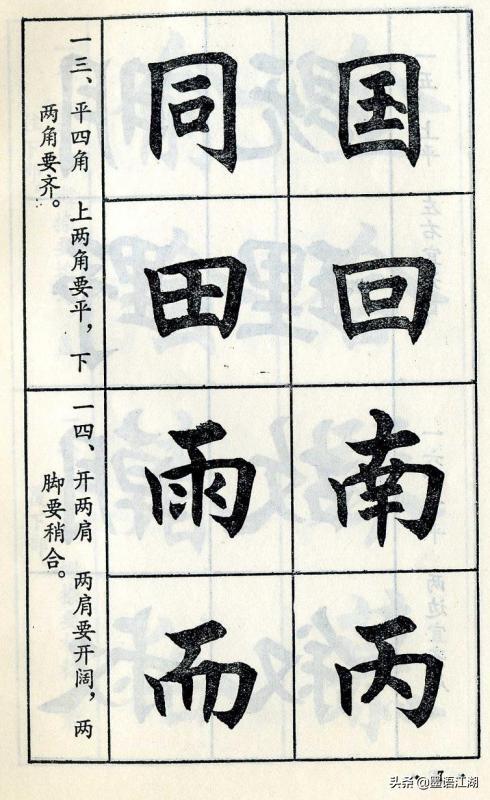 国
回
南
丙
同
田
雨
而
一三、平四角 上两角要平，下
两角要齐。
一四、开两肩 两肩要开阔，两
脚要稍合。
· 7 ·
头条 @墨语江湖